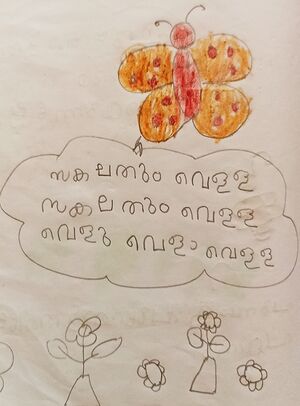 സകലതും വെള്ള
സകലതും വെള്ള
വെളു വെളാ വെള്ള